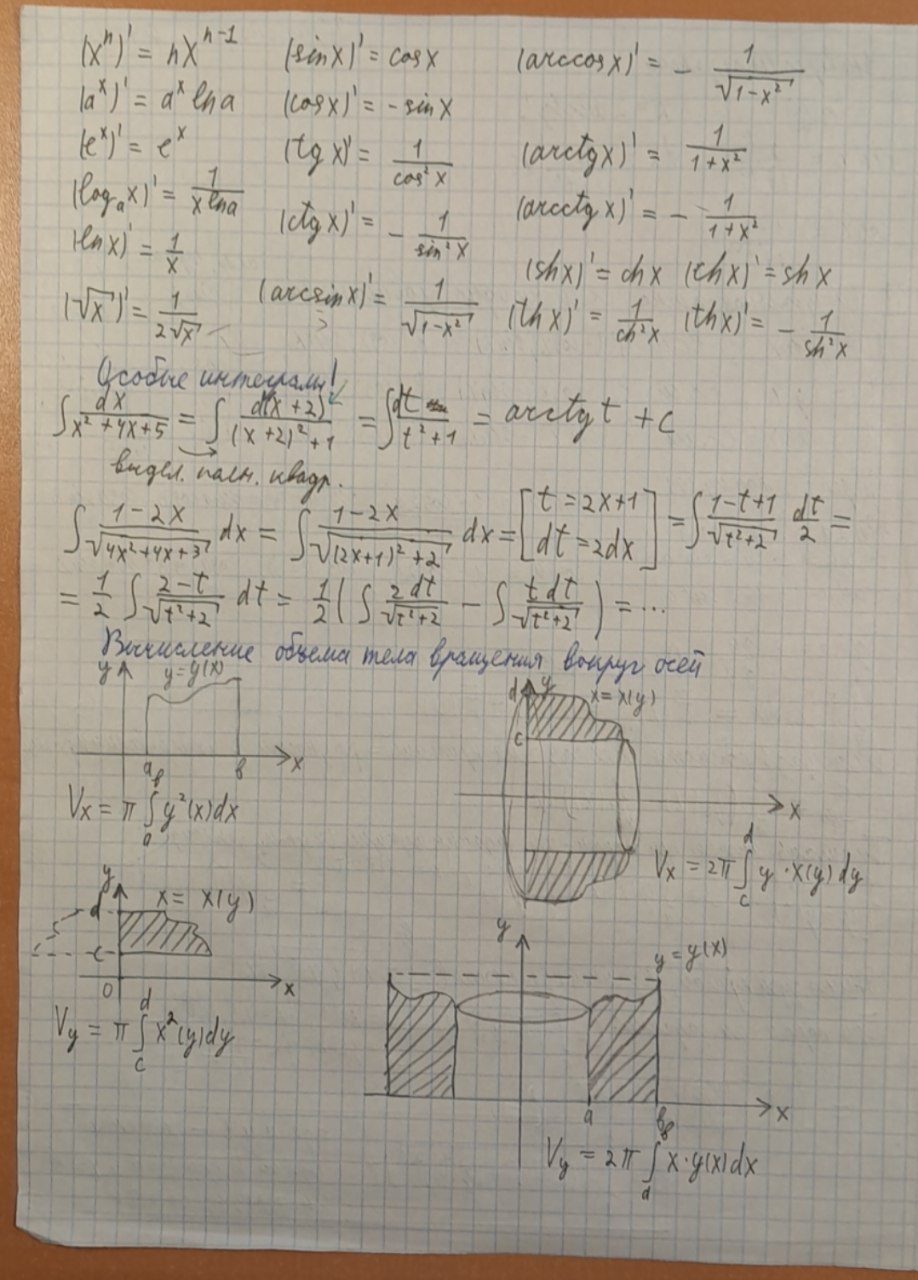 (xⁿ)' = nxⁿ⁻¹ (sinx)' = cosx (arccosx)' = - 1/√(1-x²)
(aˣ)' = aˣ lna (cosx)' = -sinx
(eˣ)' = eˣ (tgx)' = 1/cos²x (arctgx)' = 1/(1+x²)
(logₐx)' = 1/(x lna) (ctgx)' = - 1/sin²x (arcctgx)' = - 1/(1+x²)
(lnx)' = 1/x (shx)' = chx (chx)' = shx
(√x)' = 1/(2√x) (arcsinx)' = 1/√(1-x²) (thx)' = 1/ch²x (thx)' = - 1/sh²x
Особые интегралы!
∫ dx/(x²+4x+5) = ∫ d(x+2)/((x+2)²+1) = ∫ dt/(t²+1) = arctgt + c
выдел. полн. квадр.
∫ (1-2x)/√(4x²+4x+3) dx = ∫ (1-2x)/√((2x+1)²+2) dx = [t = 2x+1 dt = 2dx] = ∫ (1-t+1)/√(t²+2) dt/2 =
= 1/2 ∫ (2-t)/√(t²+2) dt = 1/2 ( ∫ 2dt/√(t²+2) - ∫ tdt/√(t²+2) ) = ...
Вычисление объема тела вращения вокруг осей
y y=y(x)
a b x
Vx = π ∫ₐᵇ y²(x)dx
d y x=x(y)
c
x
Vx = 2π ∫_c^d y·x(y)dy
y
d x= x(y)
c
0 x
Vy = π ∫_c^d x²(y)dy
y y=y(x)
a b x
Vy = 2π ∫ₐᵇ x·y(x)dx